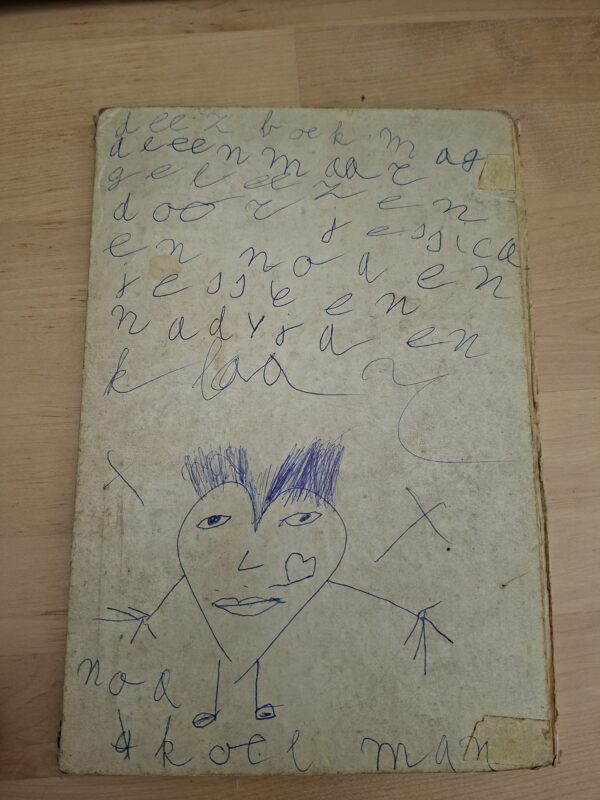 deez boek mag
aleeen maar
geleezen
door jessica
en noa en
jessie en
nadyja en
klaar
x
x
noa
skoel man